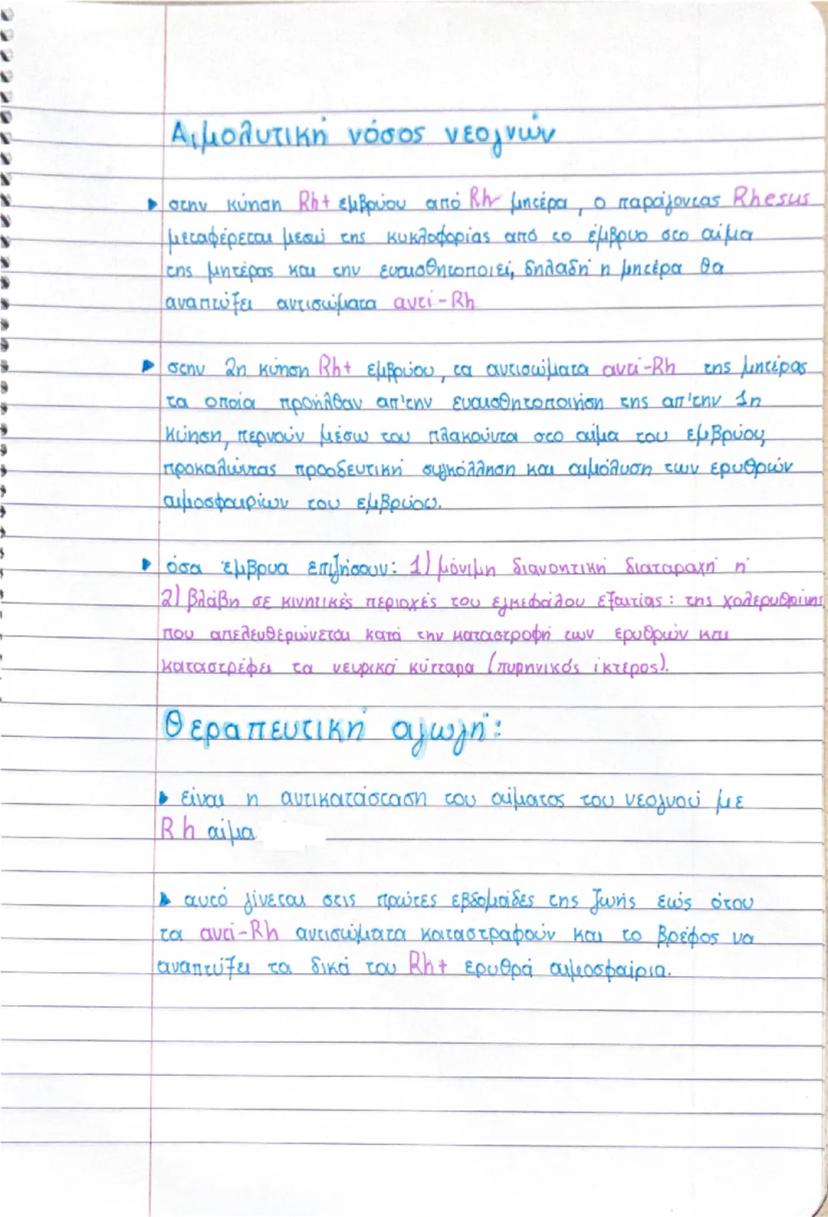 Αιμολυτική νόσος νεογνών
▸ στην κύηση Rh+ εμβρύου από Rh- μητέρα, ο παράγοντας Rhesus
μεταφέρεται μεσω της κυκλοφορίας από το έμβρυο στο αίμα
της μητέρας και την ευαισθητοποιεί, δηλαδή η μητέρα θα
αναπτύξει αντισώματα αντί-Rh
▸ στην 2η κύηση Rh+ εμβρύου, τα αντισώματα αντί-Rh της μητέρας
τα οποία προήλθαν απ'την ευαισθητοποίηση της απ'την 1η
κύηση, περνούν μέσω του πλακούντα στο αίμα του εμβρύου,
προκαλώντας προοδευτική συγκόλληση και αιμόλυση των ερυθρών
αιμοσφαιρίων του εμβρύου.
▸ όσα έμβρυα επιζήσουν: 1) μόνιμη διανοητική διαταραχή ή
2) βλάβη σε κινητικές περιοχές του εγκεφάλου εξαιτίας: της χολερυθρίνης
που απελευθερώνεται κατά την καταστροφή των ερυθρών και
καταστρέφει τα νευρικά κύτταρα (πυρηνικός ίκτερος).
Θεραπευτική αγωγή:
▸ είναι η αντικατάσταση του αίματος του νεογνού με
Rh αίμα
▸ αυτό γίνεται στις πρώτες εβδομάδες της ζωής εώς ότου
τα αντί-Rh αντισώματα καταστραφούν και το βρέφος να
αναπτύξει τα δικά του Rh+ ερυθρά αιμοσφαίρια.